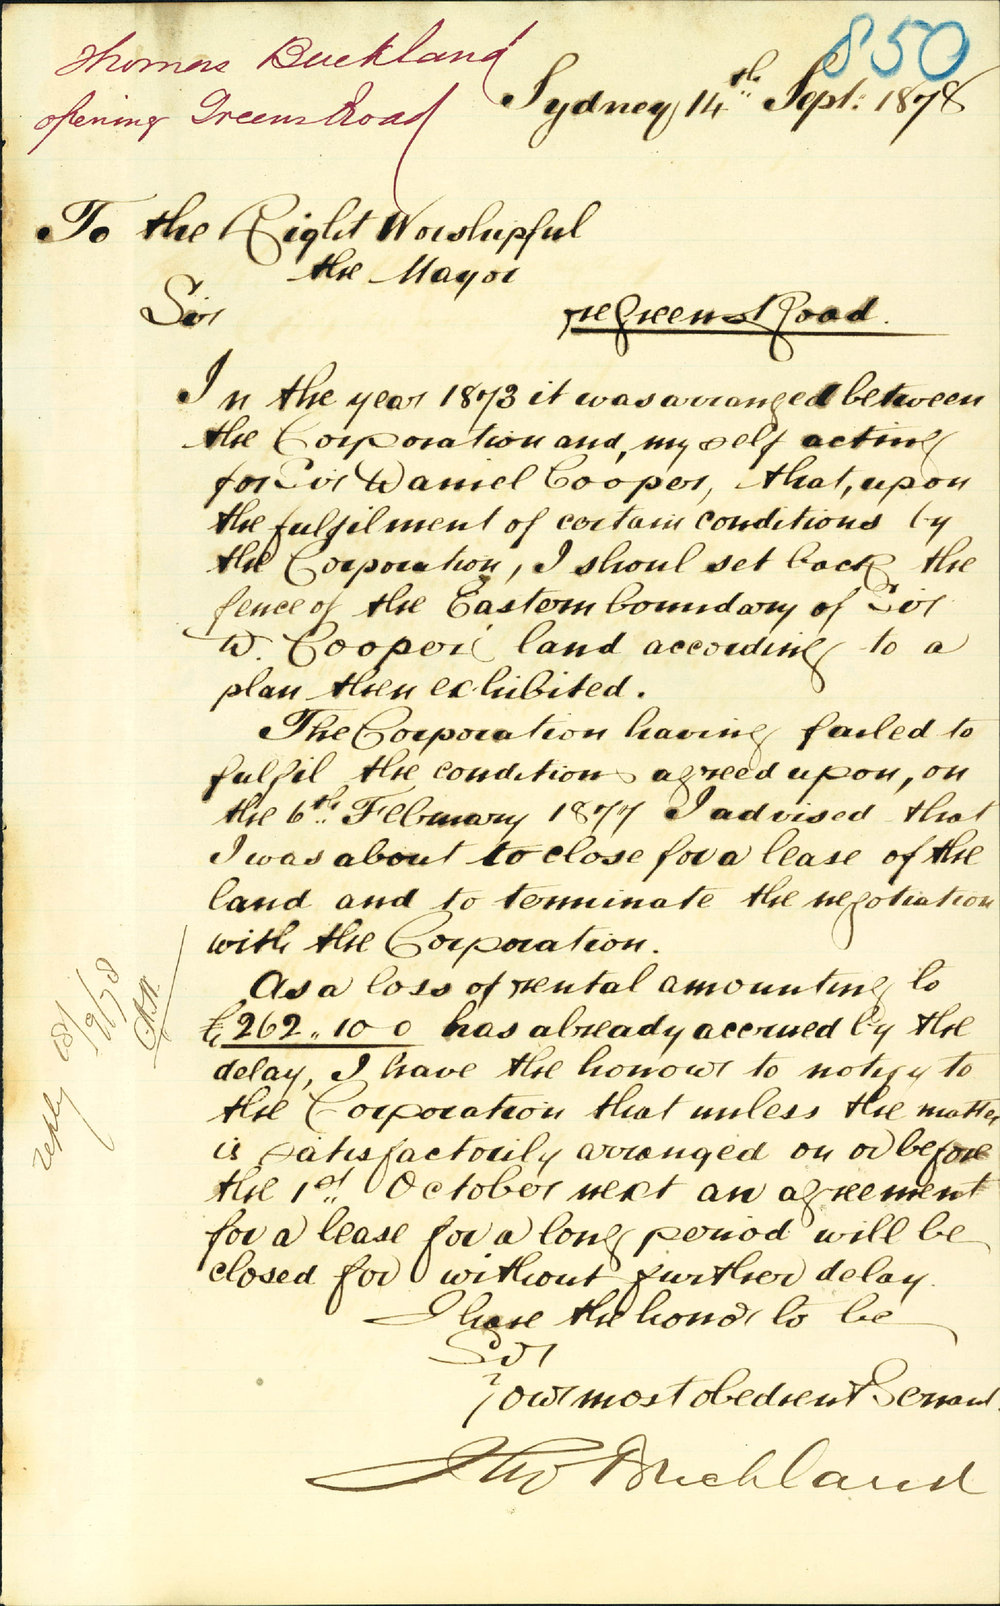 850
Thomas Buckland
opening Greens Road
Sydney 14th Sept: 1878
To the Right Worshipful
the Mayor
Sir
re Greens Road.
In the year 1873 it was arranged between
the Corporation and, myself acting
for Sir Daniel Cooper, that, upon
the fulfilment of certain conditions by
the Corporation, I shoul set back the
fence of the Eastern boundary of Sir
D. Cooper's land according to a
plan then exhibited.
The Corporation having failed to
fulfil the conditions agreed upon, on
the 6th February 1877 I advised that
I was about to close for a lease of the
land and to terminate the negotiation
with the Corporation.
As a loss of rental amounting to
£262.. 10 0 has already accrued by the
delay, I have the honour to notify to
the Corporation that unless the matter
is satisfactorily arranged on or before
the 1st October next an agreement
for a lease for a long period will be
closed for without further delay.
I have the honor to be
Sir
Your most obedient Servant.
Tho Buckland
reply